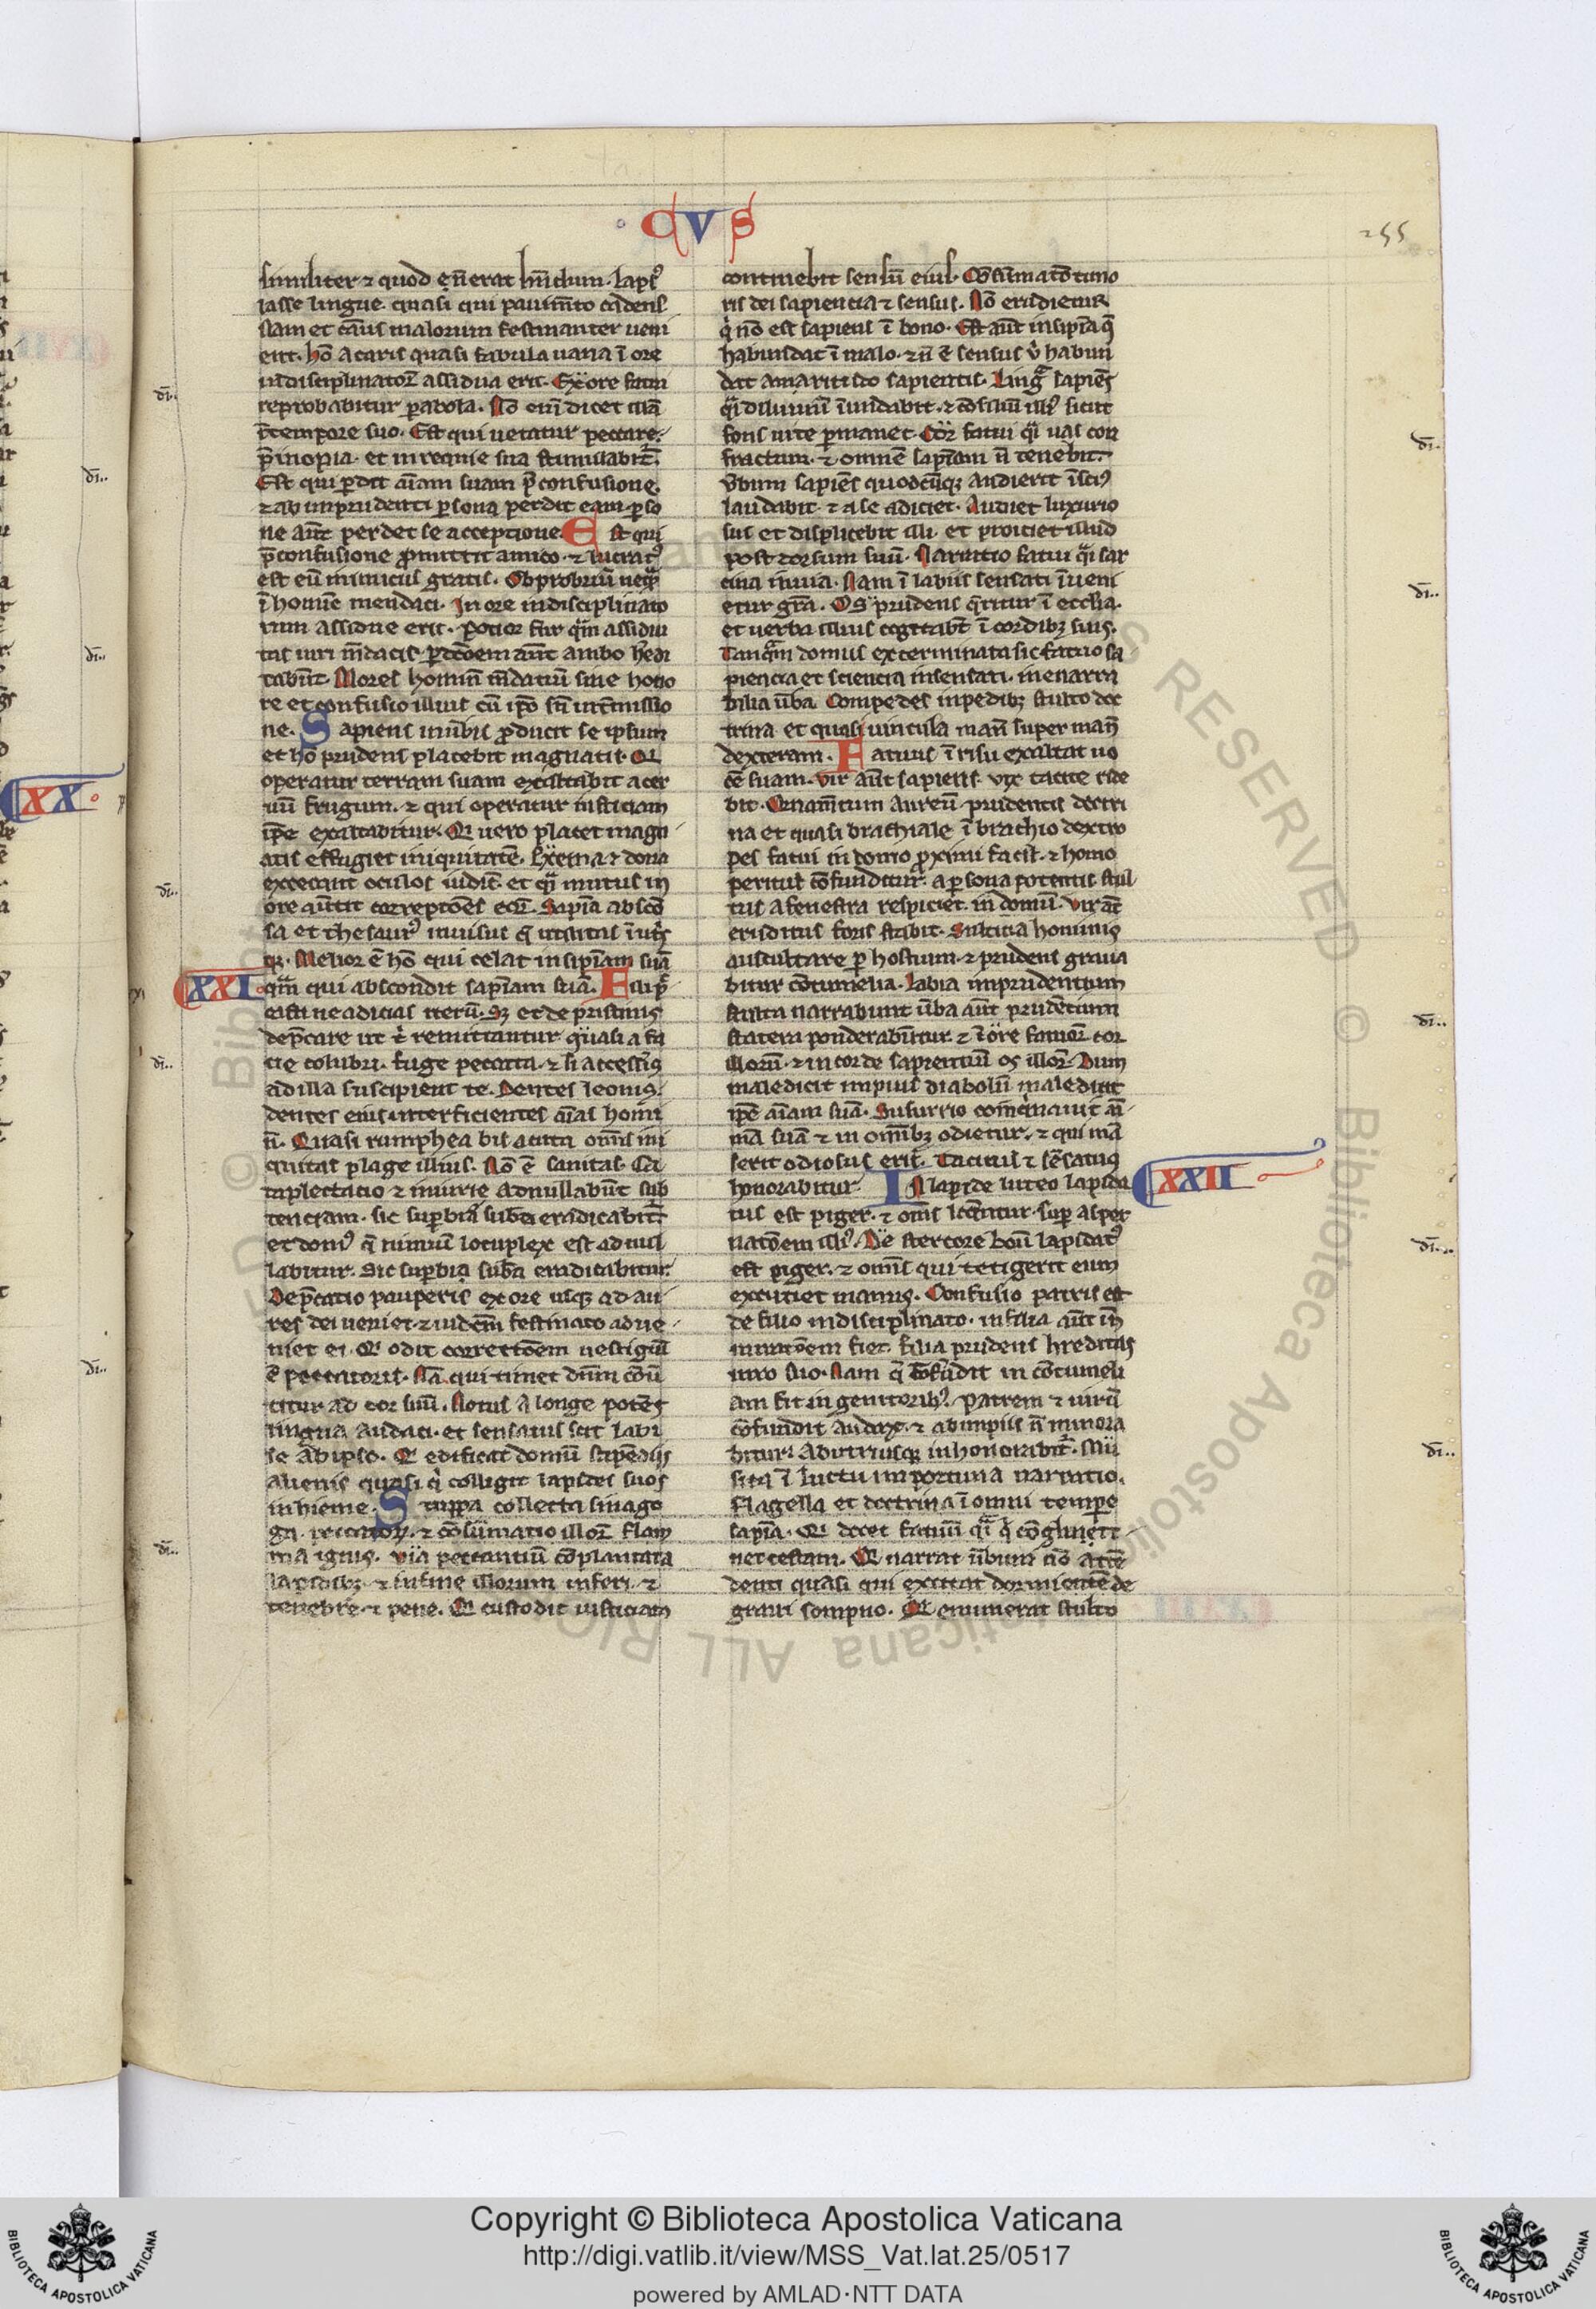 CVS
255
similiter ⁊ quod en̄erat hn̄dum. lapsꝰ
false lingue. quasi qui pauim̄to cadens
sic casus malorum festinanter ueni
ent. hō acaris quasi fabula uana ī ore
indisciplinatoꝝ assidua erit. Ex ore fatui
reprobabitur parabola. Nō enī dicet illā
ī tempore suo. Est qui uetatur peccare
p̄ inopia. et in requie sua stimulabit̄.
Est qui perdit aīam suam p̄ confusione.
⁊ ab imprudenti persona perdet eam. perso
ne aūt perdet se acceptione. Est qui
p̄ confusione promittit amico. ⁊ lucratꝰ
est eū inimicus gratis. Obprobriū neq̄
ī homīe mendaci. In ore indisciplinato
rum assidue erit. Potior fur qm̄ assidui
tas uiri m̄dacis. perdic̄oem aūt ambo hedi
tabūt. Mores hominū m̄datiū sine hono
re et confusio illius cū ip̄o sn̄ intermissio
ne. Sapiens inūbis producit se ipsum
et hō prudens placebit magnatis. Qi
operatur terram suam exaltabit acer
uū frugum. ⁊ qui operatur iusticiam
ip̄e exaltabitur. Qi uero placet magn
atis effugiet iniquitatē. Exenia ⁊ dona
excecant oculos iudicū. et q̄i mutus in
ore auertit correptōes eoꝝ. Sapīa absco
sa et thesaurꝰ inuisus q̄ utilitas ī utris
qꝫ. Melior ē hō qui celat insipīam suā
qm̄ qui abscondit sapīam suā. Fili pec
casti ne adicias iterū. Sꝫ et de pristinis
dep̄care ut t̄ remittantur. Quasi a fa
cie colubri. fuge peccata. ⁊ si accesseris
ad illa suscipient te. Dentes leonis.
dentes eius interficientes aīas homi
nū. Quasi rumphea bis acuta omīs ini
quitas plage illius. Nō ē sanitas. Ca
taplectatio ⁊ iniurie adnullabūt sub
stanciam. sic superbia subā eradicabit̄
et domꝰ q̄ nimiū locuplex est adnul
labitur. Sic superbia subā eradicabitur.
Dep̄catio pauperis ex ore usqꝫ ad au
res dei ueniet. ⁊ iudiciū festinato adue
niet ei. Qi odit correctōem uestigiū
ē peccatoris. Nā qui timet dn̄m cōuer
titur ad cor suū. Notus a longe potēs
lingua audaci. et sensatus scit labi
se ab ipso. Qi edificat domū īpendiis
alienis quasi q̇ colligit lapides suos
in hieme. Stuppa collecta sinago
ga peccatoꝝ. ⁊ cōsūmatio illoꝝ flam
ma ignis. Uia peccantiū cōplantata
lapidibꝫ. ⁊ in fine illorum inferi ⁊
tenebre ⁊ pene. Qi custodit iusticiam
continebit sensū eius. Cōsūmatō timo
ris dei sapiencia ⁊ sensus. Nō erudietur
q̇ nō est sapiens ī bono. Est aūt insipīa q̄
habundat ī malo. ⁊ n̄ ē sensus ūbi habun
dat amaritudo sapientis. Lingꝰ sapiēs
q̄i diluuiū īundabit. ⁊ cōsiliū illiꝰ sicut
fons uite permanet. Cor fatui q̄i uas con
fractum. ⁊ omnē sapīam n̄ tenebit.
Ūbum sapiēs quodcūqꝫ audierit sciꝰ
laudabit. ⁊ ad se adiciet. Audiet luxurio
sus et displicebit illi. et proiciet illud
post dorsum suū. Narratio fatui q̄i sar
cina inuia. Nam ī labiis sensati īueni
etur grā. Os prudens q̄ritur ī ecclīa.
et uerba illius cogitabūt ī cordibꝫ suis.
Tanqm̄ domus exterminata sic fatuo sa
piencia et sciencia insensati. inenarra
bilia ūba. Compedes in pedibꝫ stulto doc
trina et quasi uincula manū super manū
dexteram. Fatuus ī risu exaltat uo
cē suam. Vir aūt sapiens. uix tacite ride
bit. Ornam̄tum aureū prudentis doctri
na et quasi brachiale ī brachio dextro
pes fatui in domo proximi facil. ⁊ homo
peritus cōfunditur. a persona potentis stul
tus a fenestra respiciet in domū. Vir aūt
eruditus foris stabit. Stulticia hominis
auscultare per hostium. ⁊ prudens graua
bitur cōtumelia. Labia imprudentium
stulta narrabunt ūba aūt prudētium
statera ponderabūtur. ⁊ ī ore fatuoꝝ cor
illoꝝ. ⁊ in corde sapientiū os illoꝝ. Dum
maledicit impius diabolū maledicit
ip̄e aīam suā. Susurrio coinq̇nauit aī
mā suā ⁊ in omībꝫ odietur. ⁊ qui mā
serit odiosus erit. Tacitus ⁊ sēsatus
honorabitur. In lapide luteo lapida
tus est piger. ⁊ omīs locūtur. super asper
natōem illiꝰ. De stercore boū lapidatꝰ
est piger. ⁊ omīs qui tetigerit eum
excutiet manus. Confusio patris est
de filio indisciplinato. in filia aūt in
minratōem fiet. filia prudens hereditas
uiro suo. Nam q̄ cōfūdit in cōtumeli
am fit in genitoribꝰ. Patrem ⁊ uirū
cōfundit audax. ⁊ ab impiis n̄ minora
bitur. ab utriusqꝫ inhonorabit̄. Mu
sica ī luctu importuna narratio.
Flagella et doctrina ī omni tempore
sapīa. Qi docet fatuū q̄i q̇ cōgluti
net testam. Qi narrat ūbum nō attē
denti quasi qui excitat dormientē de
graui sompno. Qi enumerat stulto
XX
XXI
XXII
Copyright © Biblioteca Apostolica Vaticana
http://digi.vatlib.it/view/MSS_Vat.lat.25/0517
powered by AMLAD·NTT DATA
BIBLIOTECA APOSTOLICA VATICANA
BIBLIOTECA APOSTOLICA VATICANA